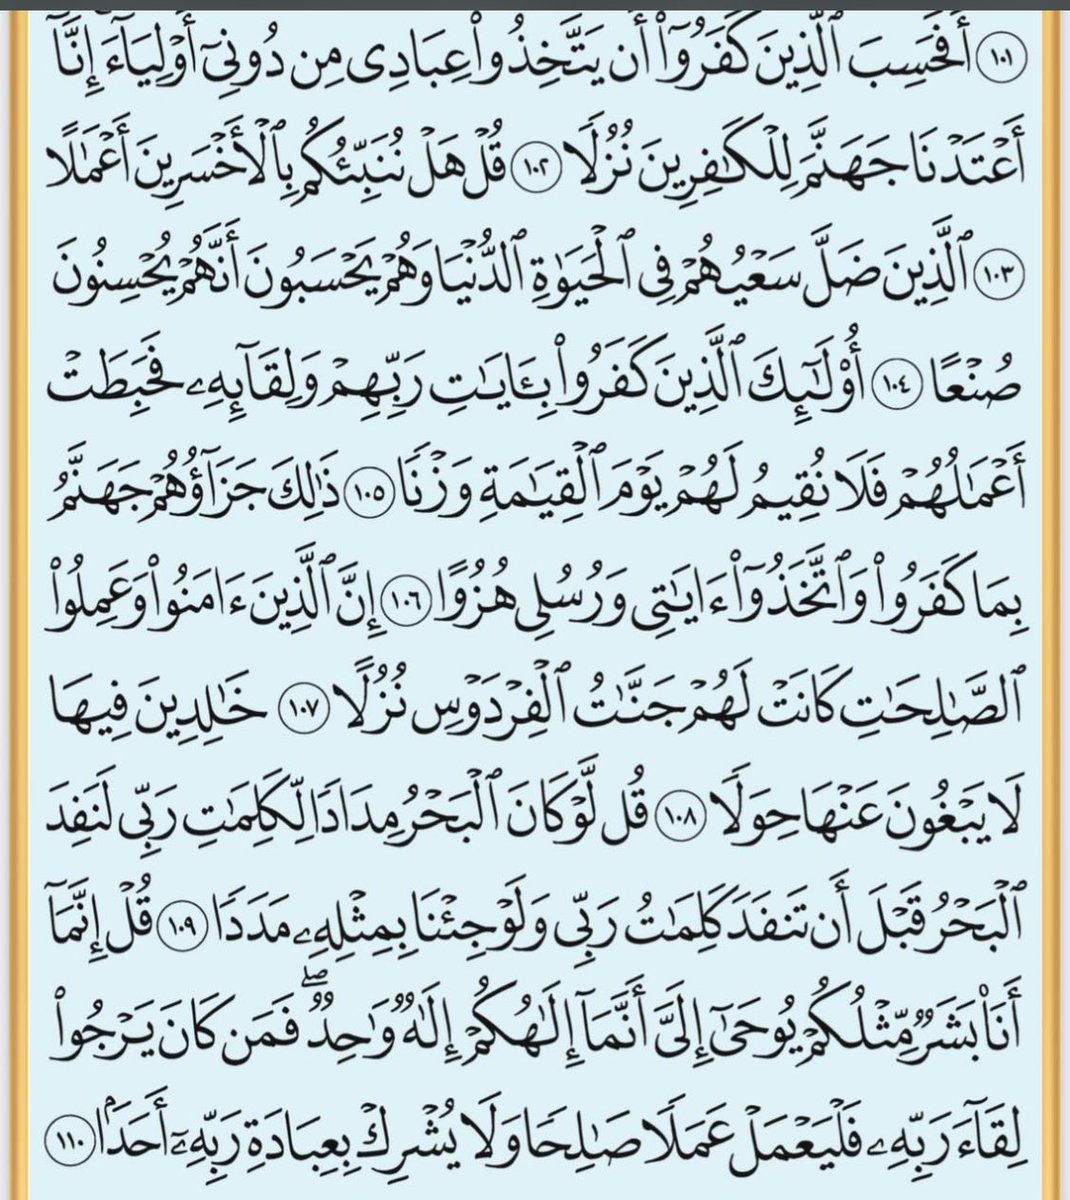 ١٠١ أَفَحَسِبَ ٱلَّذِينَ كَفَرُوٓا۟ أَن يَتَّخِذُوا۟ عِبَادِى مِن دُونِىٓ أَوْلِيَآءَ إِنَّآ
أَعْتَدْنَا جَهَنَّمَ لِلْكَـٰفِرِينَ نُزُلًا ١٠٢ قُلْ هَلْ نُنَبِّئُكُم بِٱلْأَخْسَرِينَ أَعْمَـٰلًا
١٠٣ ٱلَّذِينَ ضَلَّ سَعْيُهُمْ فِى ٱلْحَيَوٰةِ ٱلدُّنْيَا وَهُمْ يَحْسَبُونَ أَنَّهُمْ يُحْسِنُونَ
صُنْعًا ١٠٤ أُو۟لَـٰٓئِكَ ٱلَّذِينَ كَفَرُوا۟ بِـَٔايَـٰتِ رَبِّهِمْ وَلِقَآئِهِۦ فَحَبِطَتْ
أَعْمَـٰلُهُمْ فَلَا نُقِيمُ لَهُمْ يَوْمَ ٱلْقِيَـٰمَةِ وَزْنًا ١٠٥ ذَٰلِكَ جَزَآؤُهُمْ جَهَنَّمُ
بِمَا كَفَرُوا۟ وَٱتَّخَذُوٓا۟ ءَايَـٰتِى وَرُسُلِى هُزُوًا ١٠٦ إِنَّ ٱلَّذِينَ ءَامَنُوا۟ وَعَمِلُوا۟
ٱلصَّـٰلِحَـٰتِ كَانَتْ لَهُمْ جَنَّـٰتُ ٱلْفِرْدَوْسِ نُزُلًا ١٠٧ خَـٰلِدِينَ فِيهَا
لَا يَبْغُونَ عَنْهَا حِوَلًا ١٠٨ قُل لَّوْ كَانَ ٱلْبَحْرُ مِدَادًا لِّكَلِمَـٰتِ رَبِّى لَنَفِدَ
ٱلْبَحْرُ قَبْلَ أَن تَنفَدَ كَلِمَـٰتُ رَبِّى وَلَوْ جِئْنَا بِمِثْلِهِۦ مَدَدًا ١٠٩ قُلْ إِنَّمَآ
أَنَا۠ بَشَرٌ مِّثْلُكُمْ يُوحَىٰٓ إِلَىَّ أَنَّمَآ إِلَـٰهُكُمْ إِلَـٰهٌ وَٰحِدٌ ۖ فَمَن كَانَ يَرْجُوا۟
لِقَآءَ رَبِّهِۦ فَلْيَعْمَلْ عَمَلًا صَـٰلِحًا وَلَا يُشْرِكْ بِعِبَادَةِ رَبِّهِۦٓ أَحَدًۢا ١١٠